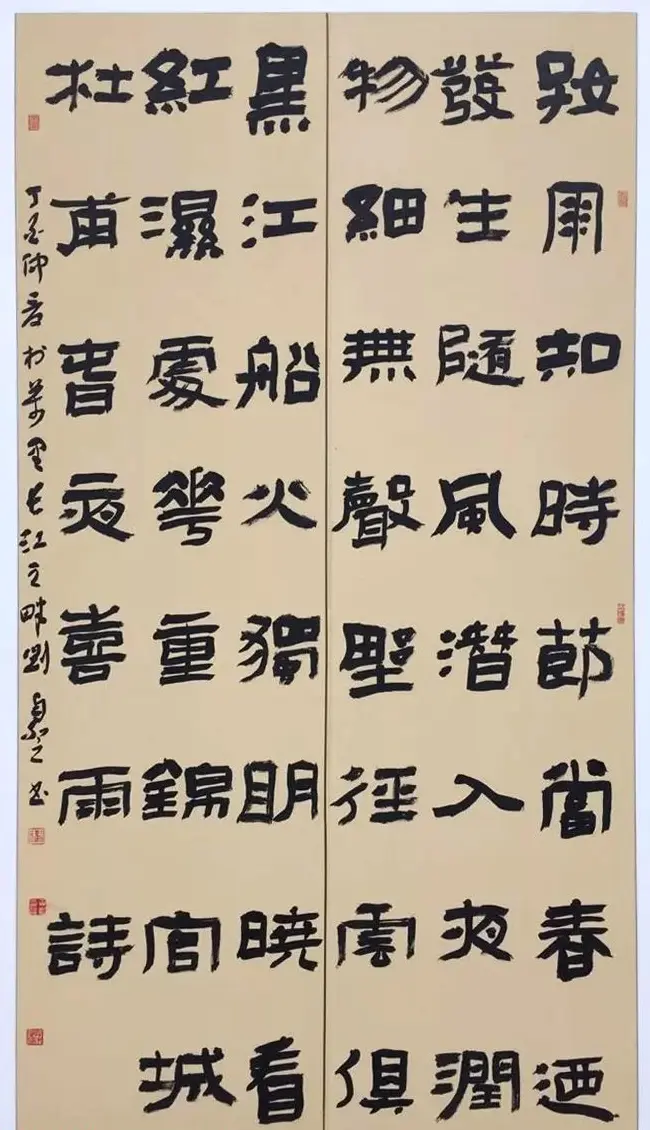 好雨知時節當春迺
發生隨風潛入夜潤
物細無聲野徑雲俱
黑江船火獨明曉看
紅濕處華重錦官城
杜甫春夜喜雨詩
丁酉仲於萬里長江之畔劉之書